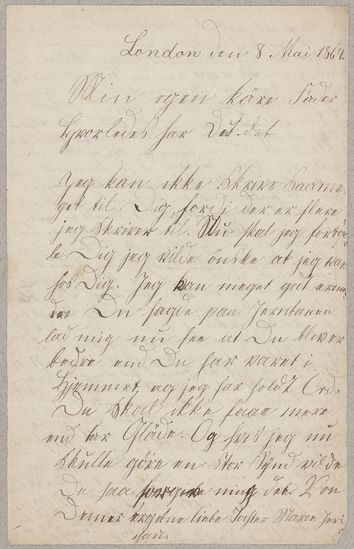 London den 8 Mai 1864.
Min egen käre Fader
Hvorledes har Du det
Jeg kan ikke skrive saa me
get til Dig fordi der er flere
jeg skriver til. Nu skal jeg fortæ
le Dig jeg vilde önske at jeg var
hos Dig. Jeg kan meget godt erin
dre Du sagde paa Jernbanen
lad mig nu see at Du bliver
bedre end Du har varet i
Hjemmet, og jeg har holdt Ord.
Du skal ikke faae mere
end bar Gläde. Og hvis jeg nu
skulle göre en stor Synd vilde
Du saa mig det. Von
Deiner liebe Tochter Marie